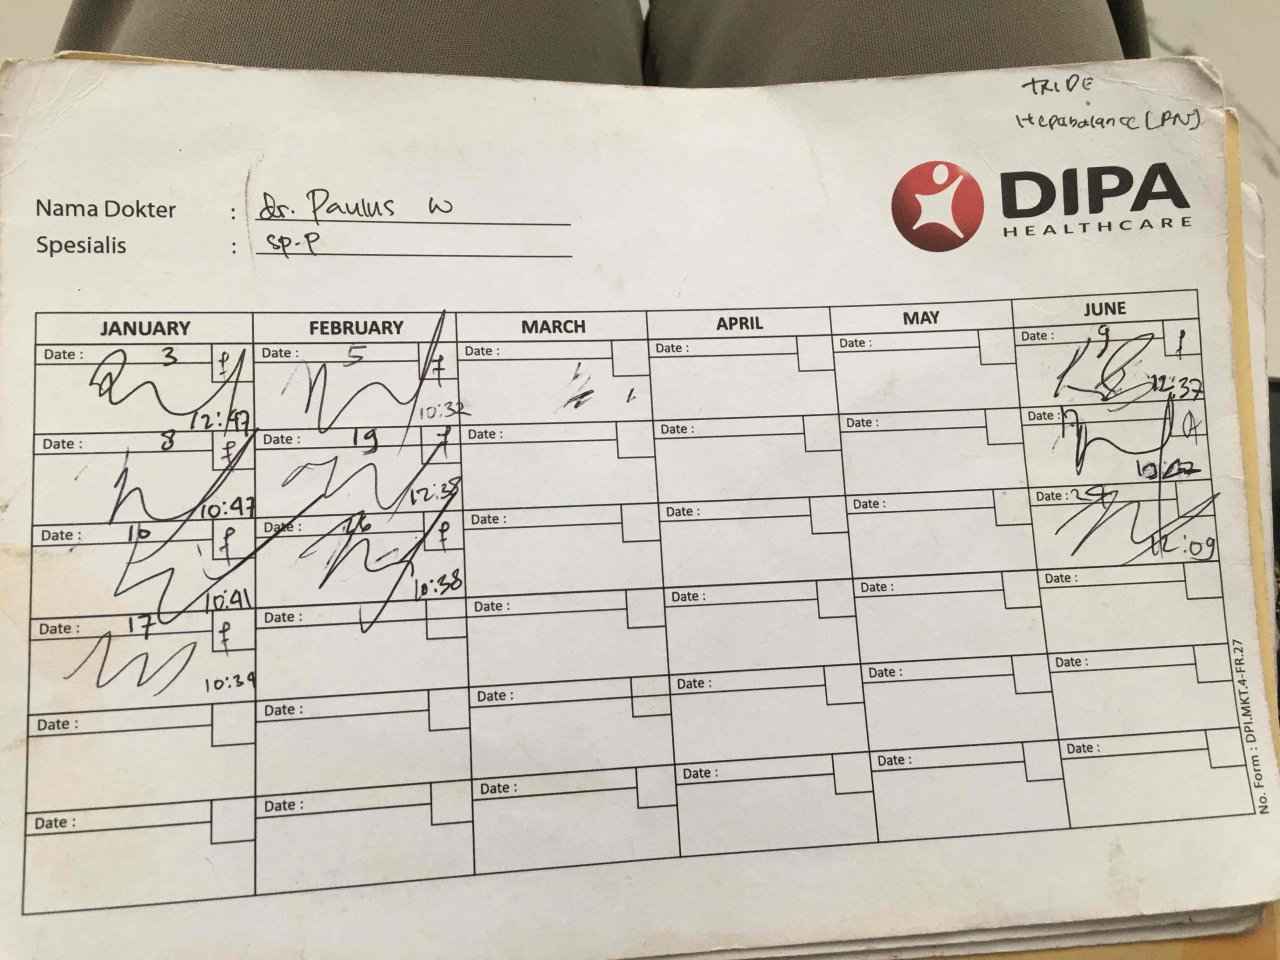 TRIDE
Hepabalance [PN]
DIPA
HEALTHCARE
Nama Dokter : dr. Paulus W
Spesialis : Sp-P
JANUARY FEBRUARY MARCH APRIL MAY JUNE
Date : 3 f Date : 5 f Date : Date : Date : Date : 9 f
12:47 10:32 12:37
Date : 8 f Date : 19 f Date : Date : Date : Date :
10:47 12:38
Date : 10 f Date : 26 f Date : Date : Date : Date :
10:41 10:38 12:09
Date : 17 f Date : Date : Date : Date : Date :
10:39
Date : Date : Date : Date : Date : Date :
Date : Date : Date : Date : Date : Date :
No. Form : DPI.MKT.4-FR.27